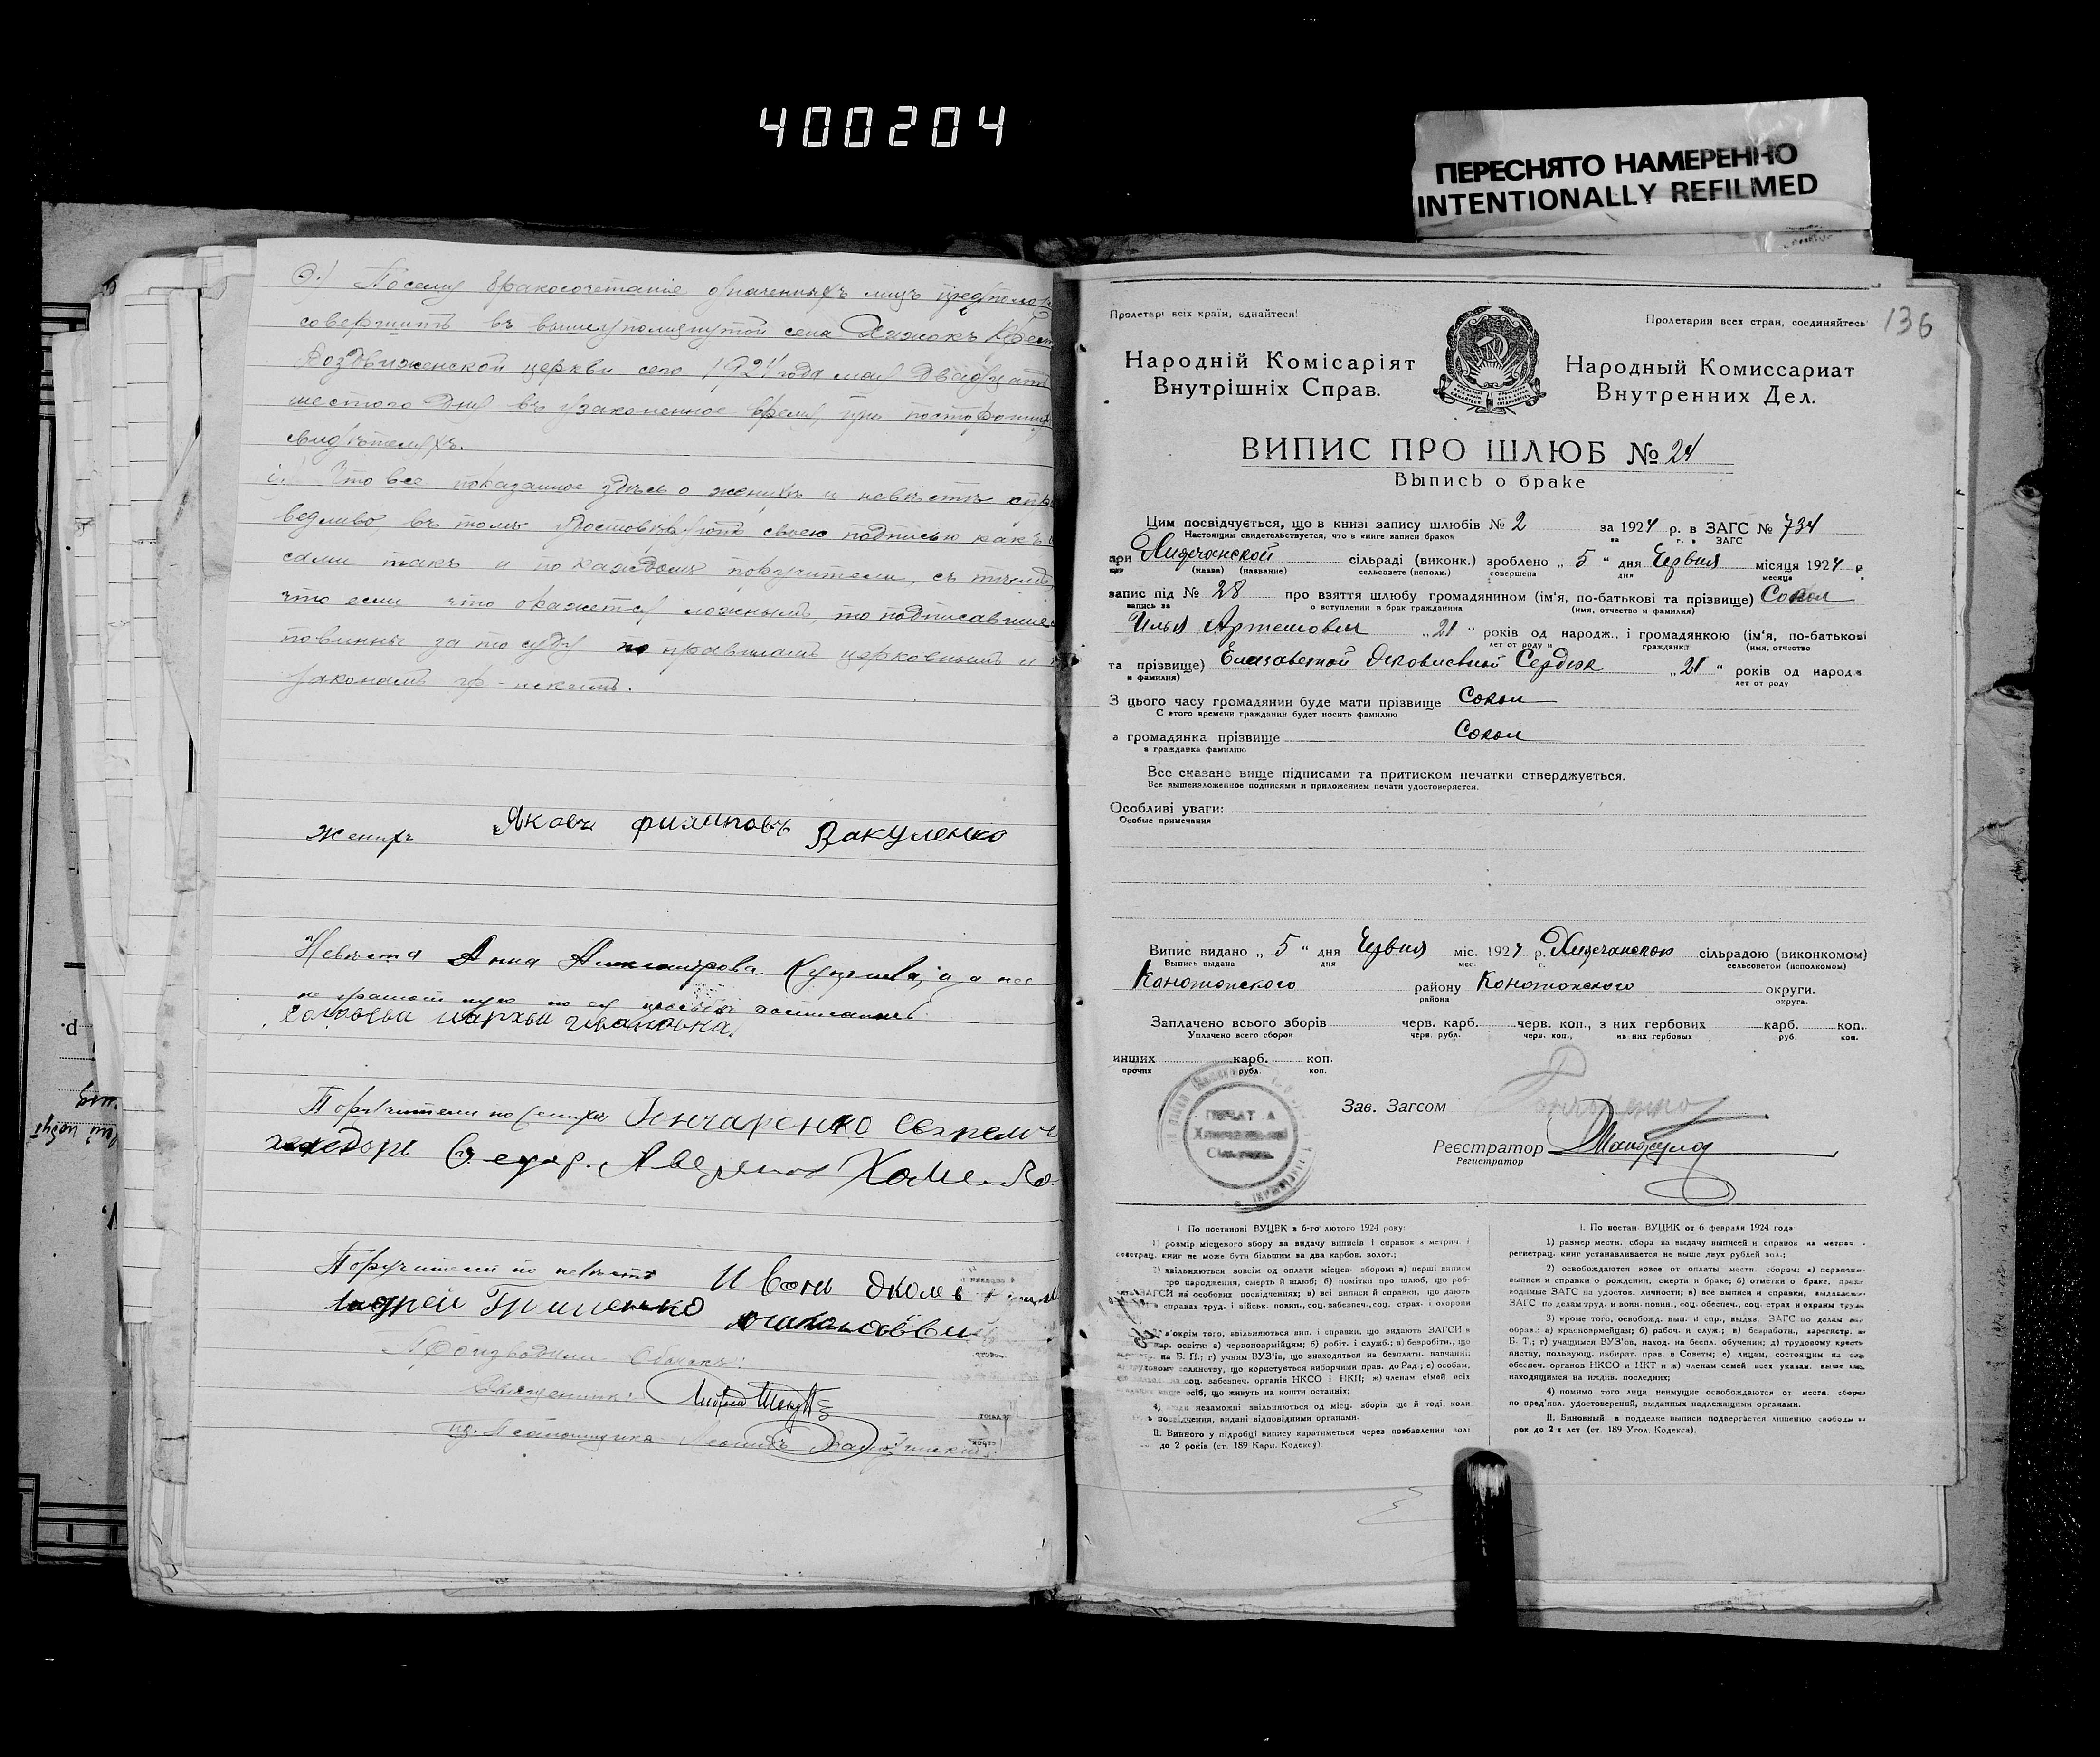 400204
ПЕРЕСНЯТО НАМЕРЕННО
INTENTIONALLY REFILMED
9.) Посему бракосочетаніе означенныхъ лицъ предполож
совершить въ вышеупомянутой села Хижокъ Кресто
Воздвиженской церкви сего 1924 года мая двадцать
шестого дня въ узаконенное время, при постороннихъ
свидѣтеляхъ.
Что все показанное здѣсь о женихѣ и невѣстѣ спра
ведливо, въ томъ удостовѣряютъ своею подписью какъ
сами такъ и по каждомъ поручители, съ тѣмъ
что если что окажется ложнымъ, то подписавшіе
повинны за то суду по правиламъ церковнымъ и
законамъ
Женихъ Яковъ Филиповъ Вакуленко
Невѣста Анна Александрова а за нее
не грамотную по ея просьбѣ
Ивановна
Поручители по женихѣ Гончаренко
Хоменко
Поручители по невѣстѣ Иванъ
Андрей Гриценко
Производили обыскъ:
Священникъ:
Псаломщика Леонидъ
136
Пролетарі всіх країн, єднайтеся!
Пролетарии всех стран, соединяйтесь
Народній Комісаріят
Внутрішніх Справ.
Народный Комиссариат
Внутренних Дел.
ВИПИС ПРО ШЛЮБ № 24
Выпись о браке
Цим посвідчується, що в книзі запису шлюбів № 2 за 1924 р. в ЗАГС № 734
Настоящим свидетельствуется, что в книге записи браков за г. в ЗАГС
при Хижчанской сільраді (виконк.) зроблено „ 5 “ дня Червня місяця 1924 р
при (назва) (название) сельсовете (исполк.) совершена дня месяца г.
запис під № 28 про взяття шлюбу громадянином (ім'я, по-батькові та прізвище) Сокол
запись за о вступлении в брак гражданина (имя, отчество и фамилия)
Илья Артемович „ 21 “ років од народж., і громадянкою (ім'я, по-батькові
лет от роду и гражданкт (имя, отчество
та прізвище) Елизаветой Яковлевной Сердюк „ 21 “ років од народж
и фамилия) лет от роду
З цього часу громадянин буде мати прізвище Сокол
С этого времени гражданин будет носить фамилию
а громадянка прізвище Сокол
а гражданка фамилию
Все сказане вище підписами та притиском печатки стверджується.
Все вышеизложенное подписями и приложением печати удостоверяется.
Особливі уваги:
Особые примечания
Випис видано „ 5 “ дня Червня міс. 1924 р. Хижчанскою сільрадою (виконкомом)
Выпись выдана дня мес. г. сельсоветом (исполкомом)
Канотопского району Конотопского округи.
района округа.
Заплачено всього зборів черв. карб. черв. коп., з них гербових карб. коп.
Уплачено всего сборов черв. рубл. черв. коп., из них гербовых руб. коп.
инших карб. коп.
прочих рубл. коп.
Зав. Загсом Гончаренко
Реєстратор
Регистратор
І По постанові ВУЦВК в 6-го лютого 1924 року:
1) розмір місцевого збору за видачу виписів і справок з метрич. і
реєстрац. книг не може бути більшим за два карбов. золот.;
2) звільняються зовсім од оплати місцев. збором: а) перші виписи
про народження, смерть й шлюб; б) помітки про шлюб, що роб-
ЗАГСИ на особових посвідченнях; в) всі виписи й справки, що дають
в справах труд. і військ. повин., соц. забезпеч., соц. страх. і охорони
3) окрім того, звільняються вип. і справки, що видають ЗАГСИ в
нар. освіти: а) червоноармійцям; б) робіт. і служб.; в) безробітн., що
на Б. П.; г) учням ВУЗ'ів, що знаходяться на безплатн. навчанні;
трудовому селянству, що користується виборчими прав. до Рад; е) особам,
на соц. забезпеч. органів НКСО і НКП; ж) членам сімей всіх
осіб, що живуть на кошти останніх;
4) люди незаможні звільняються од місц. зборів ще й тоді, коли
посвідчення, видані відповідними органами.
ІІ. Винного у підробці випису каратиметься через позбавлення волі
до 2 років (ст. 189 Карн. Кодексу)
І. По постан. ВУЦИК от 6 февраля 1924 года
1) размер местн. сбора за выдачу выписей и справок из метрич.
регистрац. книг устанавливается не выше двух рублей зол.;
2) освобождаются вовсе от оплаты местн. сбором: а) первичные
выписи и справки о рождении, смерти и браке; б) отметки о браке, произ-
водимые ЗАГС на удостов. личности; в) все выписи и справки, выдаваемые
ЗАГС по делам труд. и воин. повин., соц. обеспеч., соц. страх и охраны труда
3) кроме того, освобожд. вып. и спр., выдав. ЗАГС по делам нар
образ.: а) красноармейцам; б) рабоч. и служ.; в) безработн., зарегистр. на
Б. Т.; г) учащимся ВУЗ'ов, наход. на беспл. обучении; д) трудовому кресть-
янству, пользующ. избират. прав. в Советы; е) лицам, состоящим на соц
обеспеч. органов НКСО и НКТ и ж) членам семей всех указан. выше лиц,
находящимся на иждив. последних;
4) помимо того лица неимущие освобождаются от местн. сборов
по пред'явл. удостоверений, выданных надлежащими органами.
ІІ. Виновный в подделке выписи подвергается лишению свободы на
рок до 2-х лет (ст. 189 Угол. Кодекса).